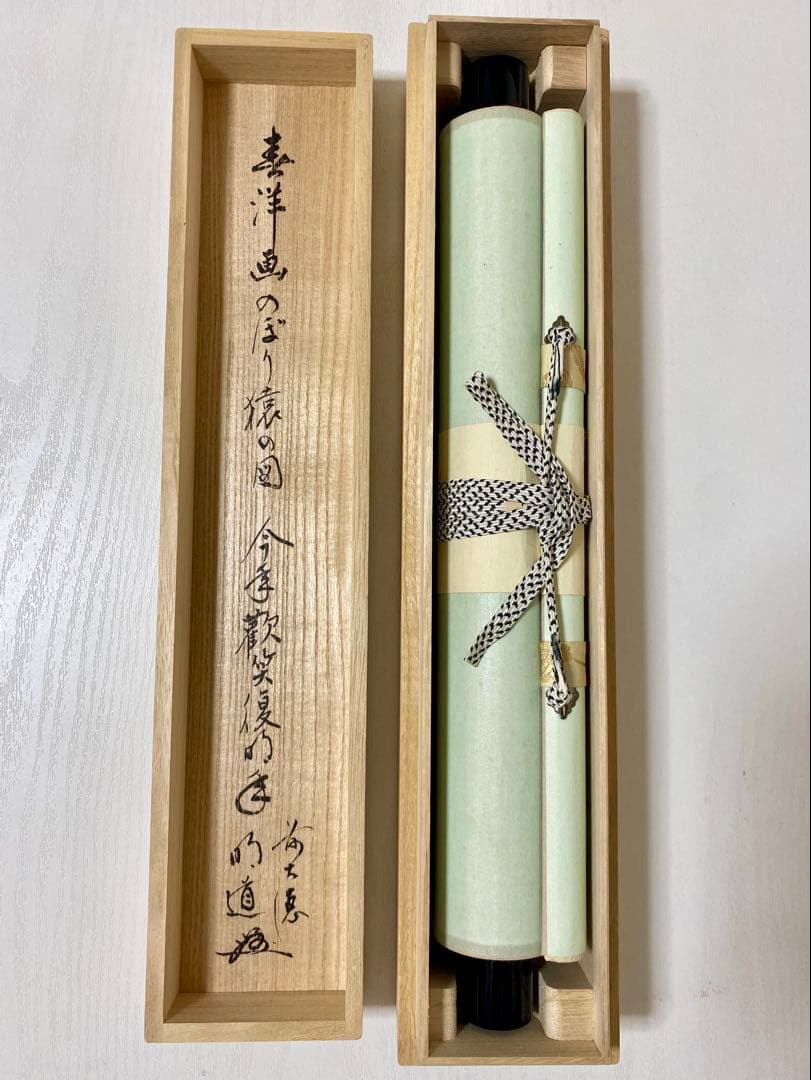 春洋画のぼり猿の図 今年歓笑復明年
前大徳
明道